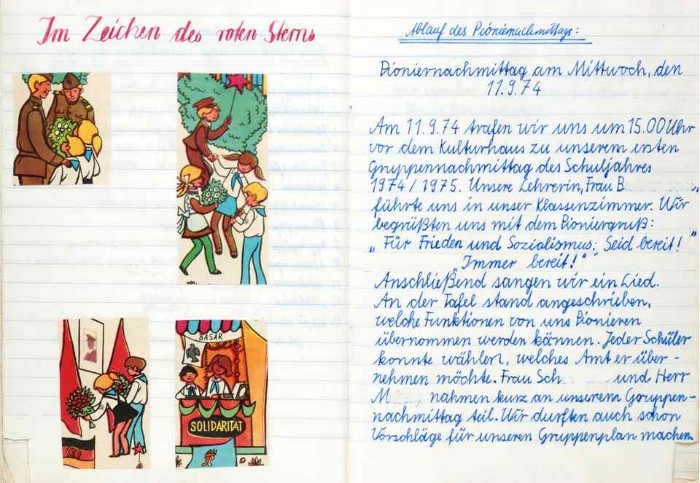 Im Zeichen des roten Sterns
BASAR
SOLIDARITÄT
Ablauf des Pioniernachmittags:
Pioniernachmittag am Mittwoch, den
11.9.74
Am 11.9.74 trafen wir uns um 15.00 Uhr
vor dem Kulturhaus zu unserem ersten
Gruppennachmittag des Schuljahres
1974/1975. Unsere Lehrerin, Frau B
führte uns in unser Klassenzimmer. Wir
begrüßten uns mit dem Pioniergruß:
„Für Frieden und Sozialismus; Seid bereit!"
„Immer bereit!"
Anschließend sangen wir ein Lied.
An der Tafel stand angeschrieben,
welche Funktionen von uns Pionieren
übernommen werden können. Jeder Schüler
konnte wählen, welches Amt er über-
nehmen möchte. Frau Sch und Herr
M nahmen kurz an unserem Gruppen-
nachmittag teil. Wir durften auch schon
Vorschläge für unseren Gruppenplan machen.